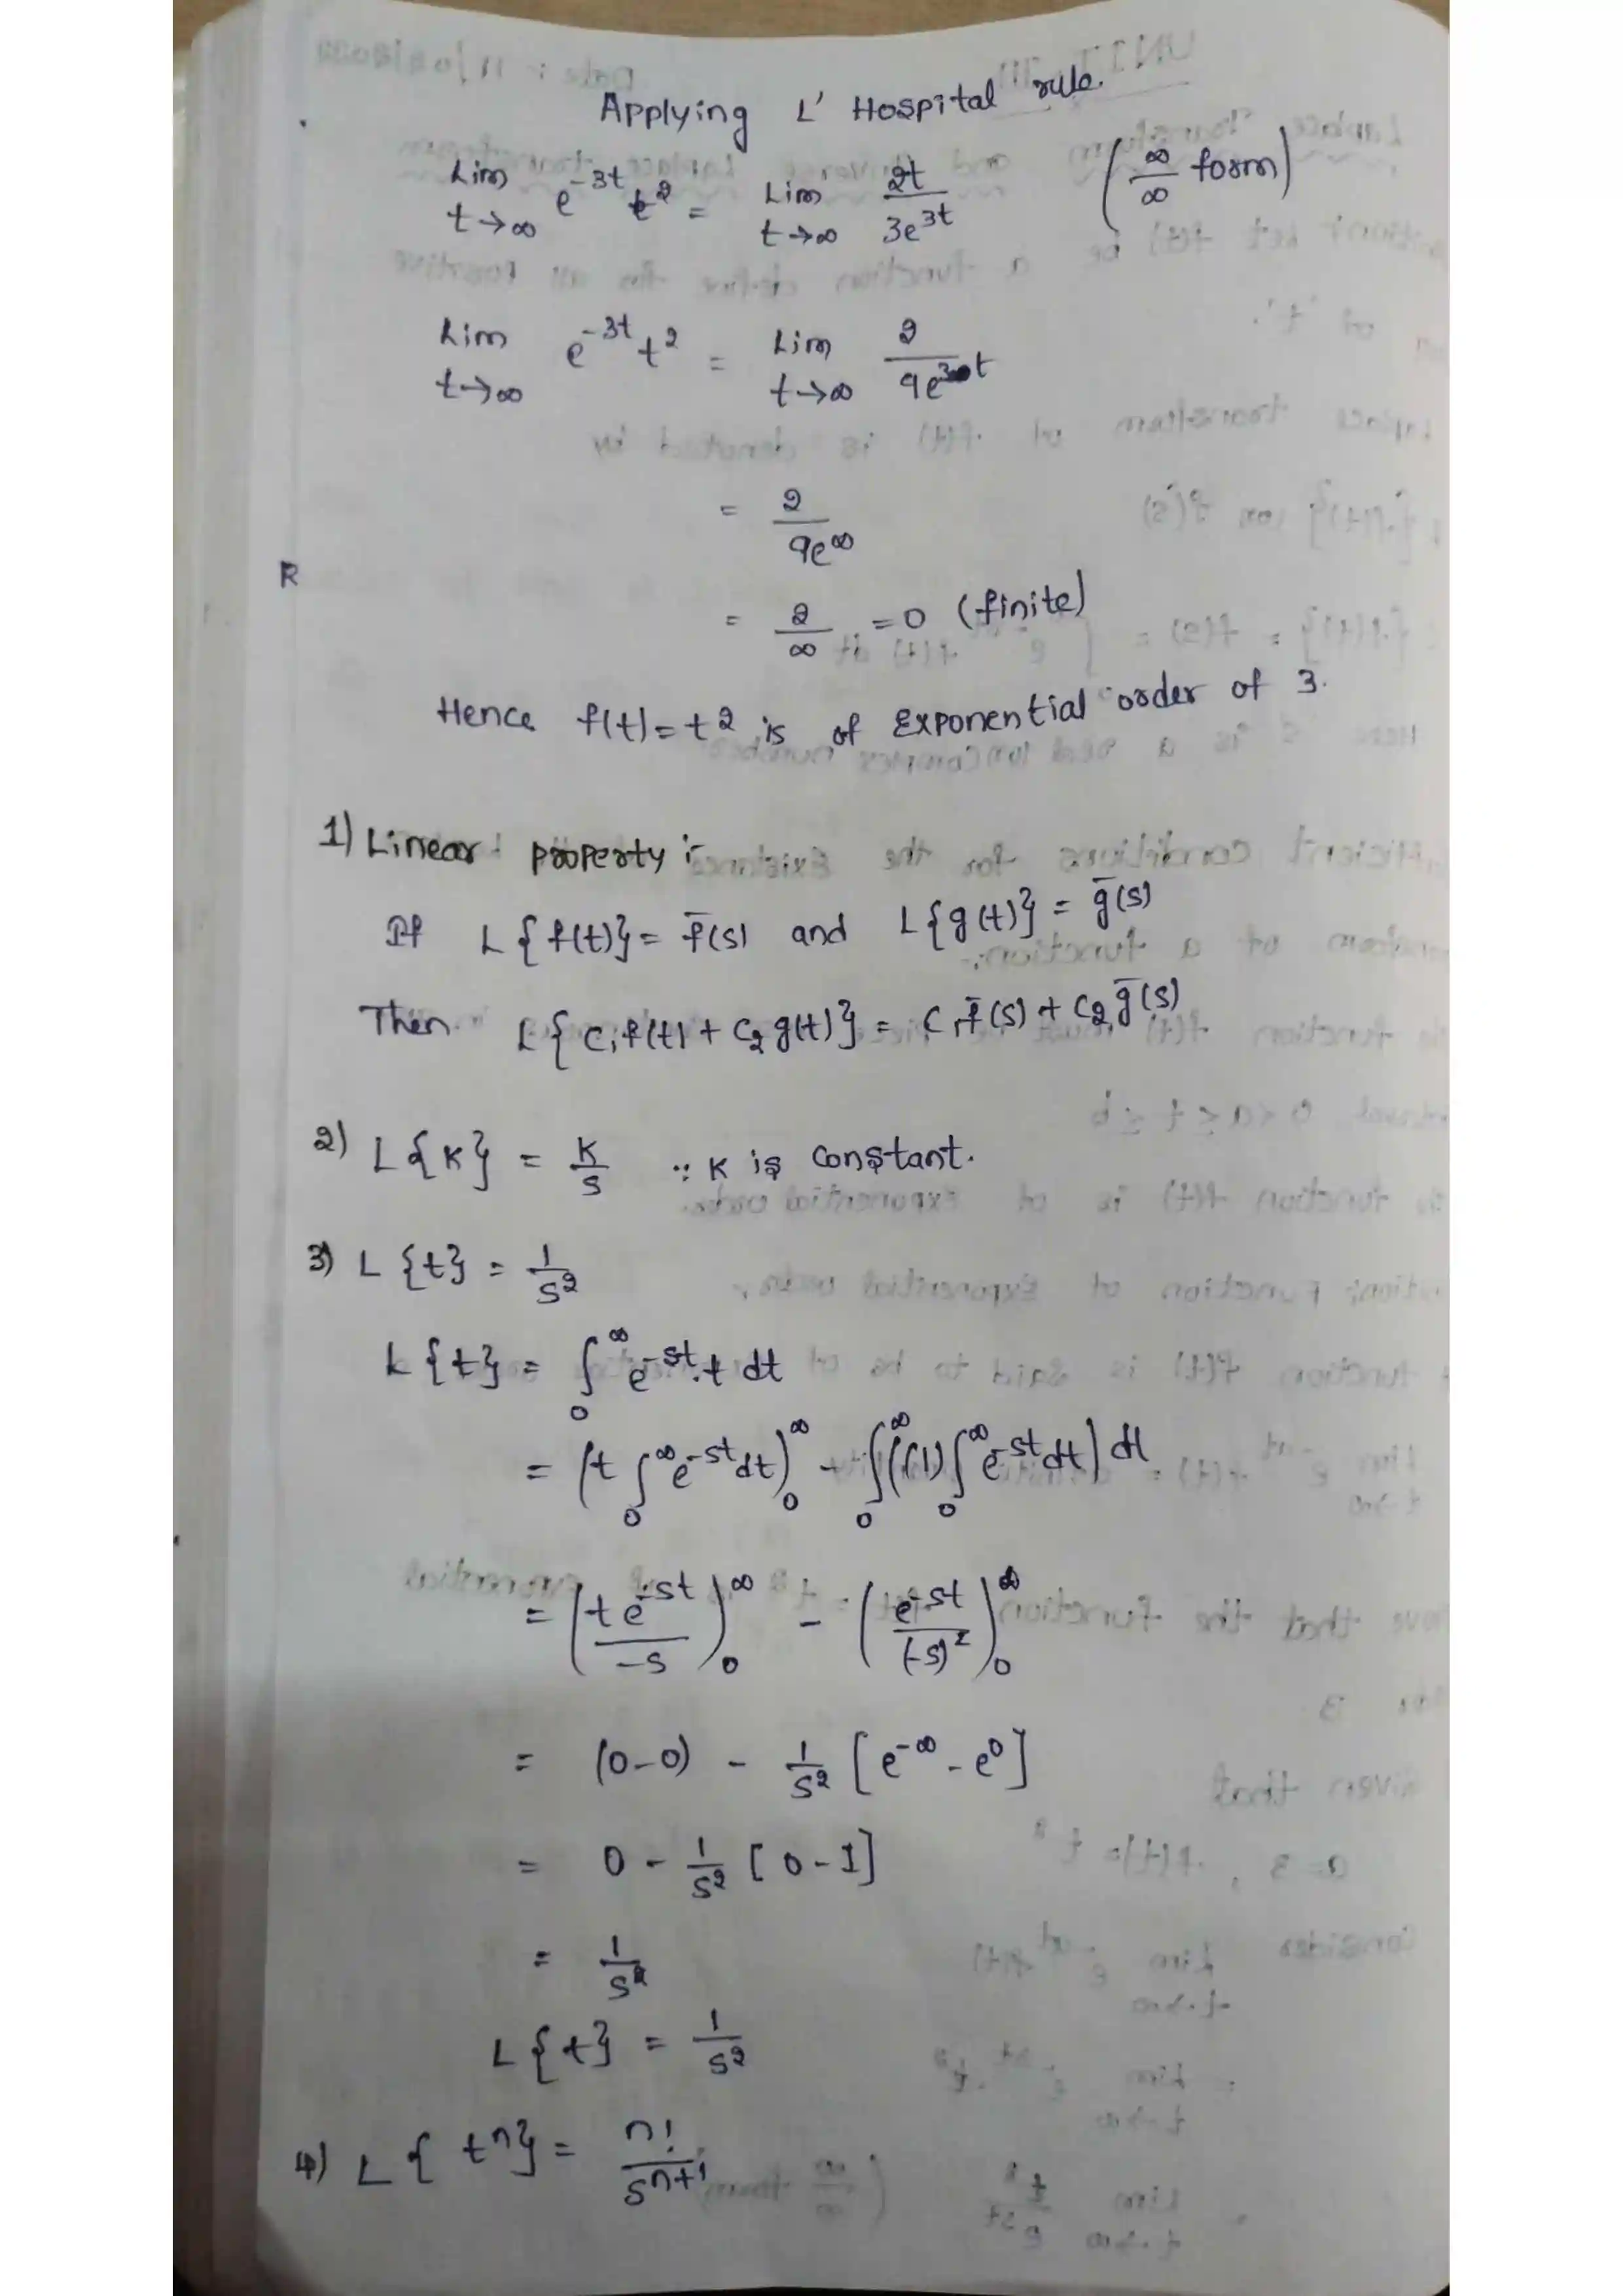 Applying L' Hospital rule.
Lim t→∞ e^{-3t} t^2 = Lim t→∞ 2t/3e^{3t} (∞/∞ form)
Lim t→∞ e^{-3t} t^2 = Lim t→∞ 2/9e^{3t}
= 2/9e^∞
R
= 2/∞ = 0 (finite)
Hence f(t) = t^2 is of Exponential order of 3.
1) Linear property :-
If L{f(t)} = f̄(s) and L{g(t)} = ḡ(s)
Then L{c₁f(t) + c₂g(t)} = c₁f̄(s) + c₂ḡ(s)
2) L{K} = K/s ∵ K is constant.
3) L{t} = 1/s^2
L{t} = ∫_0^∞ e^{-st}.t dt
= (t ∫_0^∞ e^{-st} dt)_0^∞ - ∫_0^∞ ((1) ∫_0^∞ e^{-st} dt) dt
= (t e^{-st}/-s)_0^∞ - (e^{-st}/(-s)^2)_0^∞
= (0-0) - 1/s^2 [e^{-∞} - e^0]
= 0 - 1/s^2 [0-1]
= 1/s^2
L{t} = 1/s^2
4) L{t^n} = n!/s^{n+1}